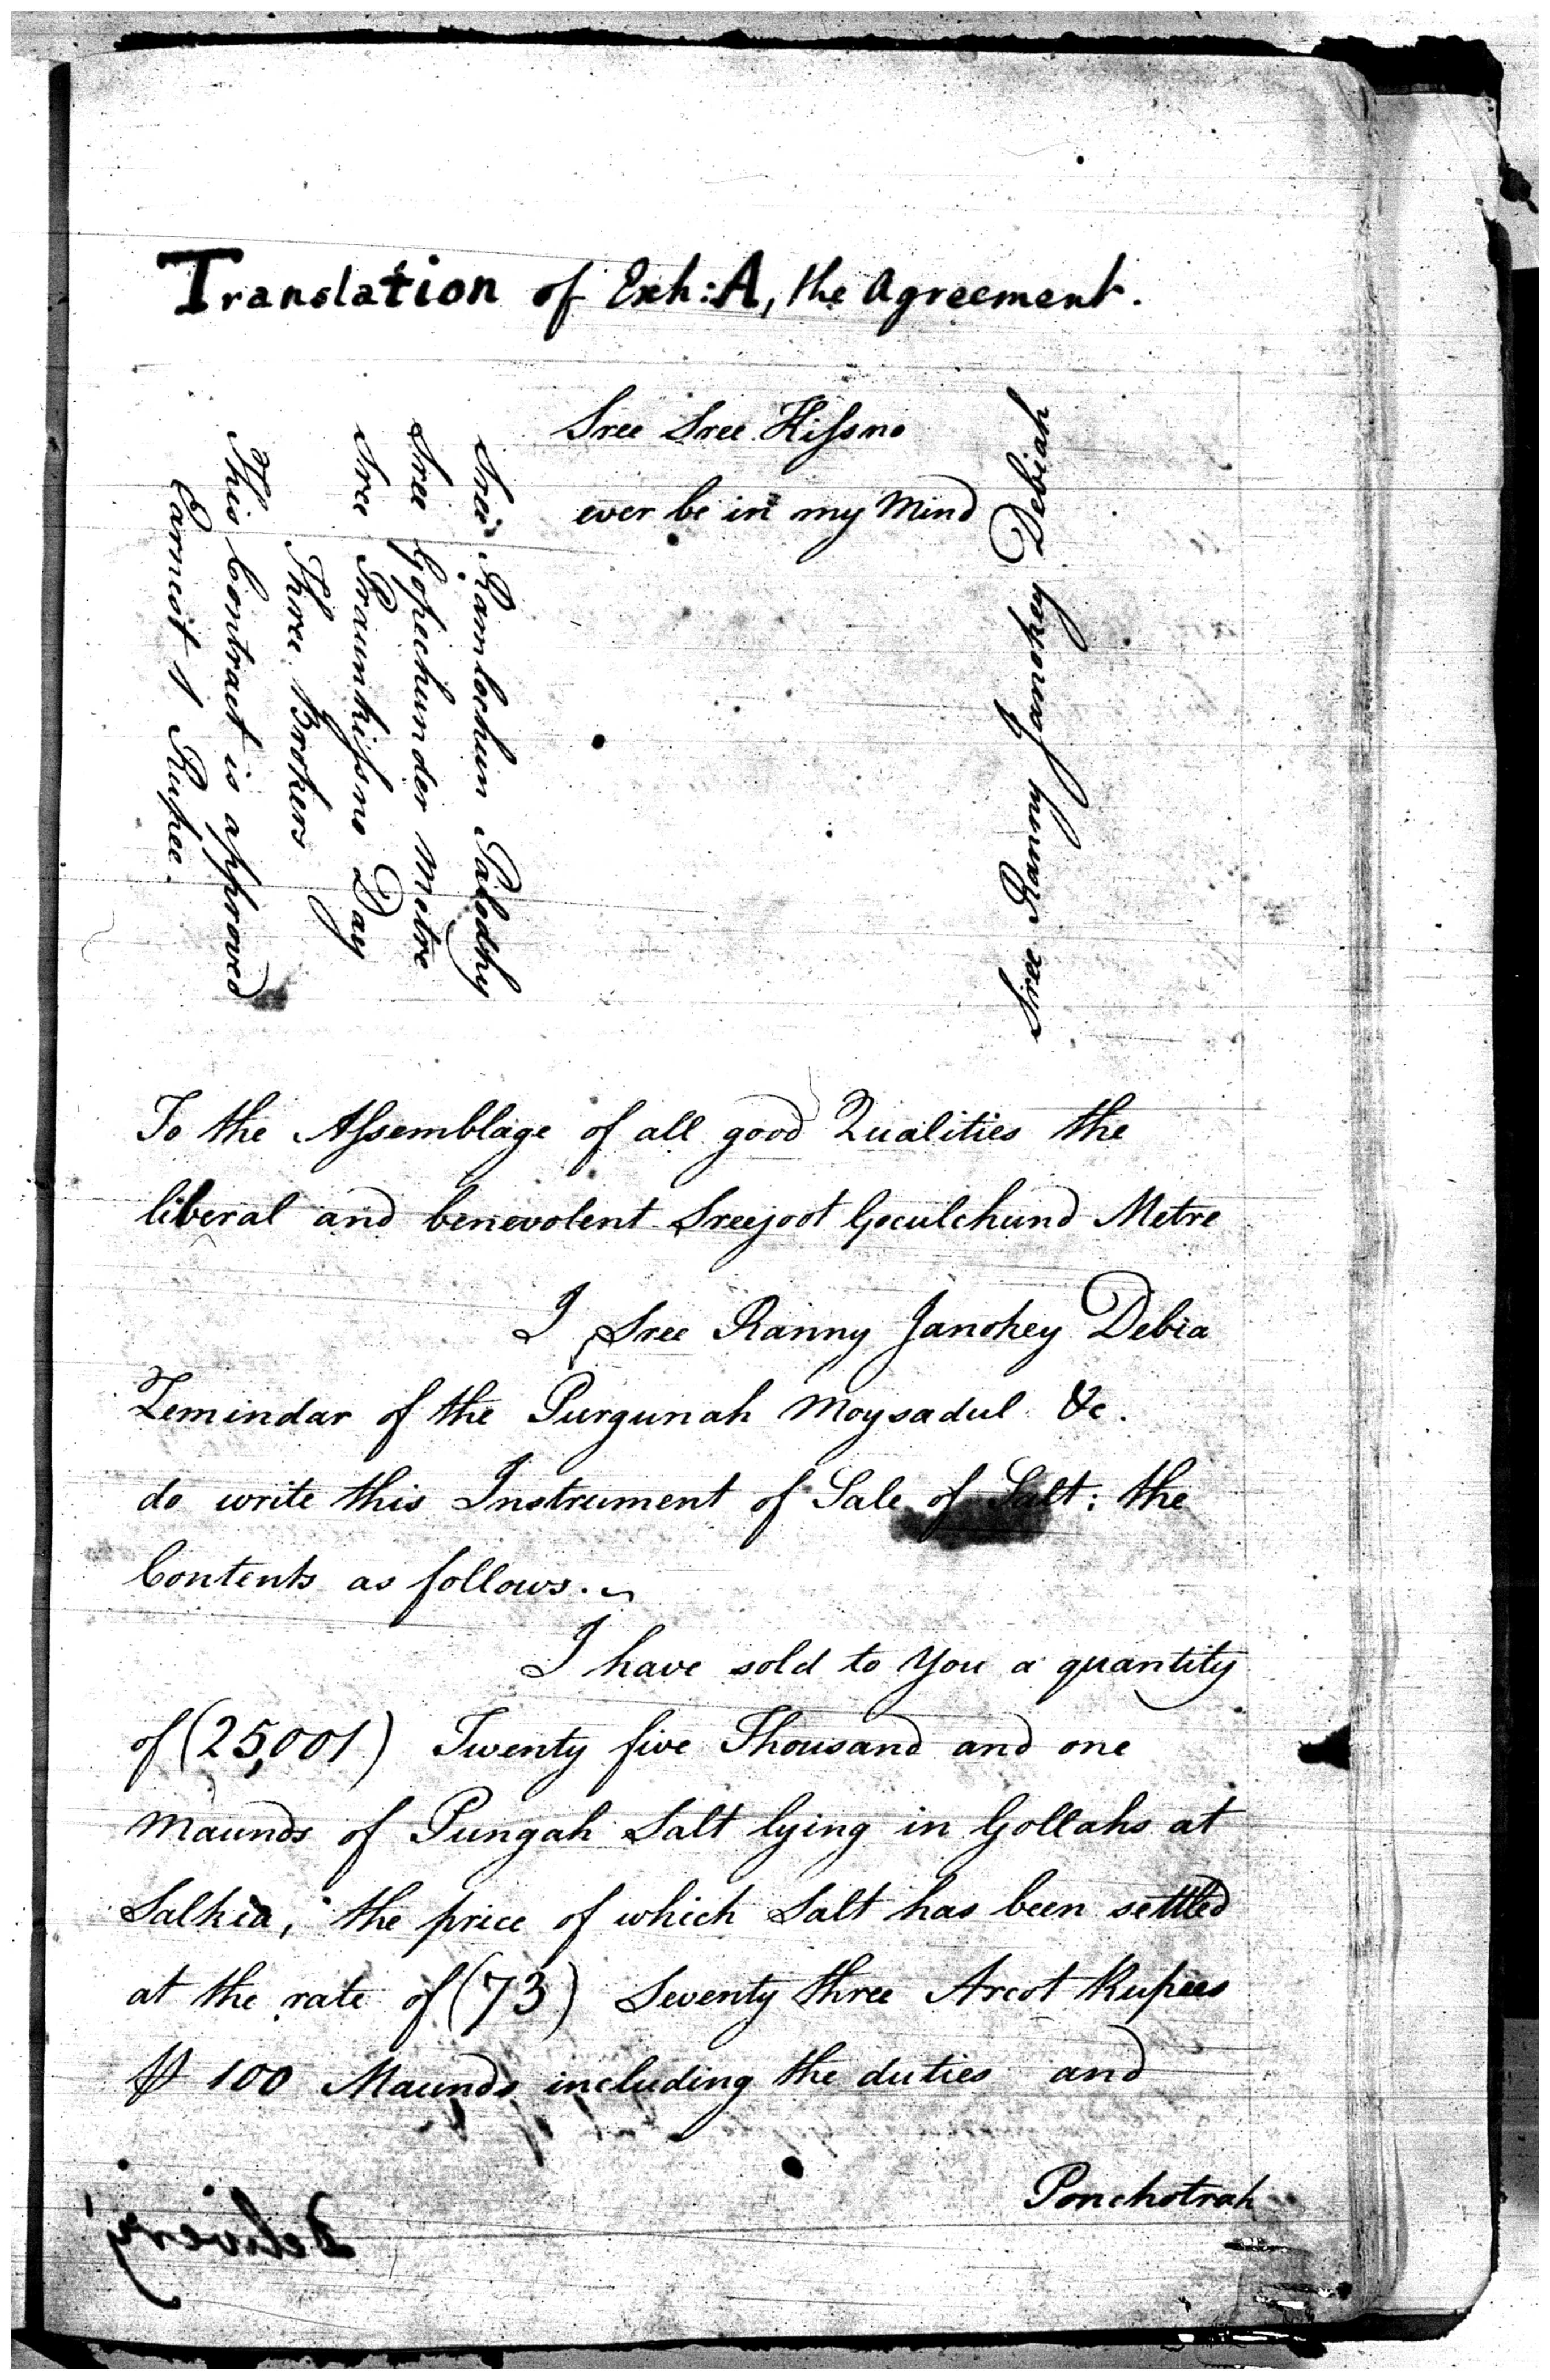 Translation of Exh: A, the Agreement.
Sree Sree Kissno
ever be in my Mind
Sree Ramlochun Paloday
Sree Gopechunder Metre
Sree Praunkissno Day
Three Brokers
This Contract is approved
Earnest 1 Rupee.
Sree Ranny Janokey Debiah
To the Assemblage of all good Qualities the
liberal and benevolent Sreejoot Goculchund Metre
I Sree Ranny Janokey Debia
Zemindar of the Purgunah Moysadul &c.
do write this Instrument of Sale of Salt: the
Contents as follows.
I have sold to You a quantity
of (25,001) Twenty five Thousand and one
Maunds of Pungah Salt lying in Gollahs at
Salkia, the price of which Salt has been settled
at the rate of (73) Seventy three Arcot Rupees
⅌ 100 Maunds including the duties and
Ponchotrah
Delivery